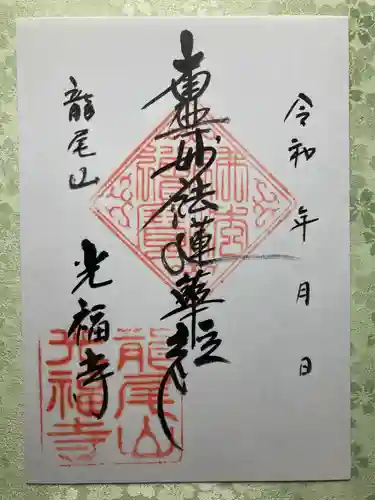 令和 年 月 日
南無妙法蓮華経
龍尾山
光福寺
龍尾山
光福寺